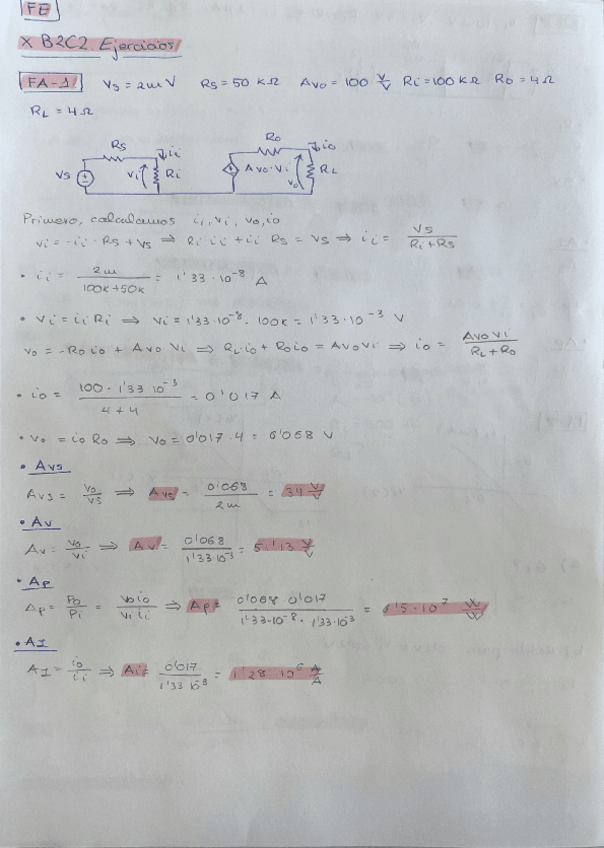 FE
X B2C2. Ejercicios
FA-1 Vs = 2m V Rs = 50 kΩ Avo = 100 V/V Ri = 100 kΩ Ro = 4Ω
RL = 4Ω
Rs ii Ro io
Vs Vi Ri Avo·Vi Vo RL
Primero, calculamos ii, vi, vo, io
vi = -ii · Rs + Vs ⇒ Ri ii + ii Rs = Vs ⇒ ii = Vs / (Ri + Rs)
• ii = 2m / (100k + 50k) = 1'33 · 10^-8 A
• Vi = ii Ri ⇒ Vi = 1'33 · 10^-8 · 100k = 1'33 · 10^-3 V
vo = -Ro io + Avo Vi ⇒ RL · io + Ro io = Avo Vi ⇒ io = Avo Vi / (RL + Ro)
• io = 100 · 1'33 10^-3 / (4 + 4) = 0'017 A
• vo = io Ro ⇒ vo = 0'017 · 4 = 0'068 V
• Avs
Avs = vo / vs ⇒ Avs = 0'068 / 2m = 34 V/V
• Av
Av = vo / vi ⇒ Av = 0'068 / 1'33·10^-3 = 51'13 V/V
• Ap
Ap = Po / Pi = vo io / vi ii ⇒ Ap = 0'068 · 0'017 / 1'33·10^-8 · 1'33·10^-3 = 6'5 · 10^7 W/W
• AI
AI = io / ii ⇒ Ai = 0'017 / 1'33 · 10^-8 = 1'28 · 10^6 A/A